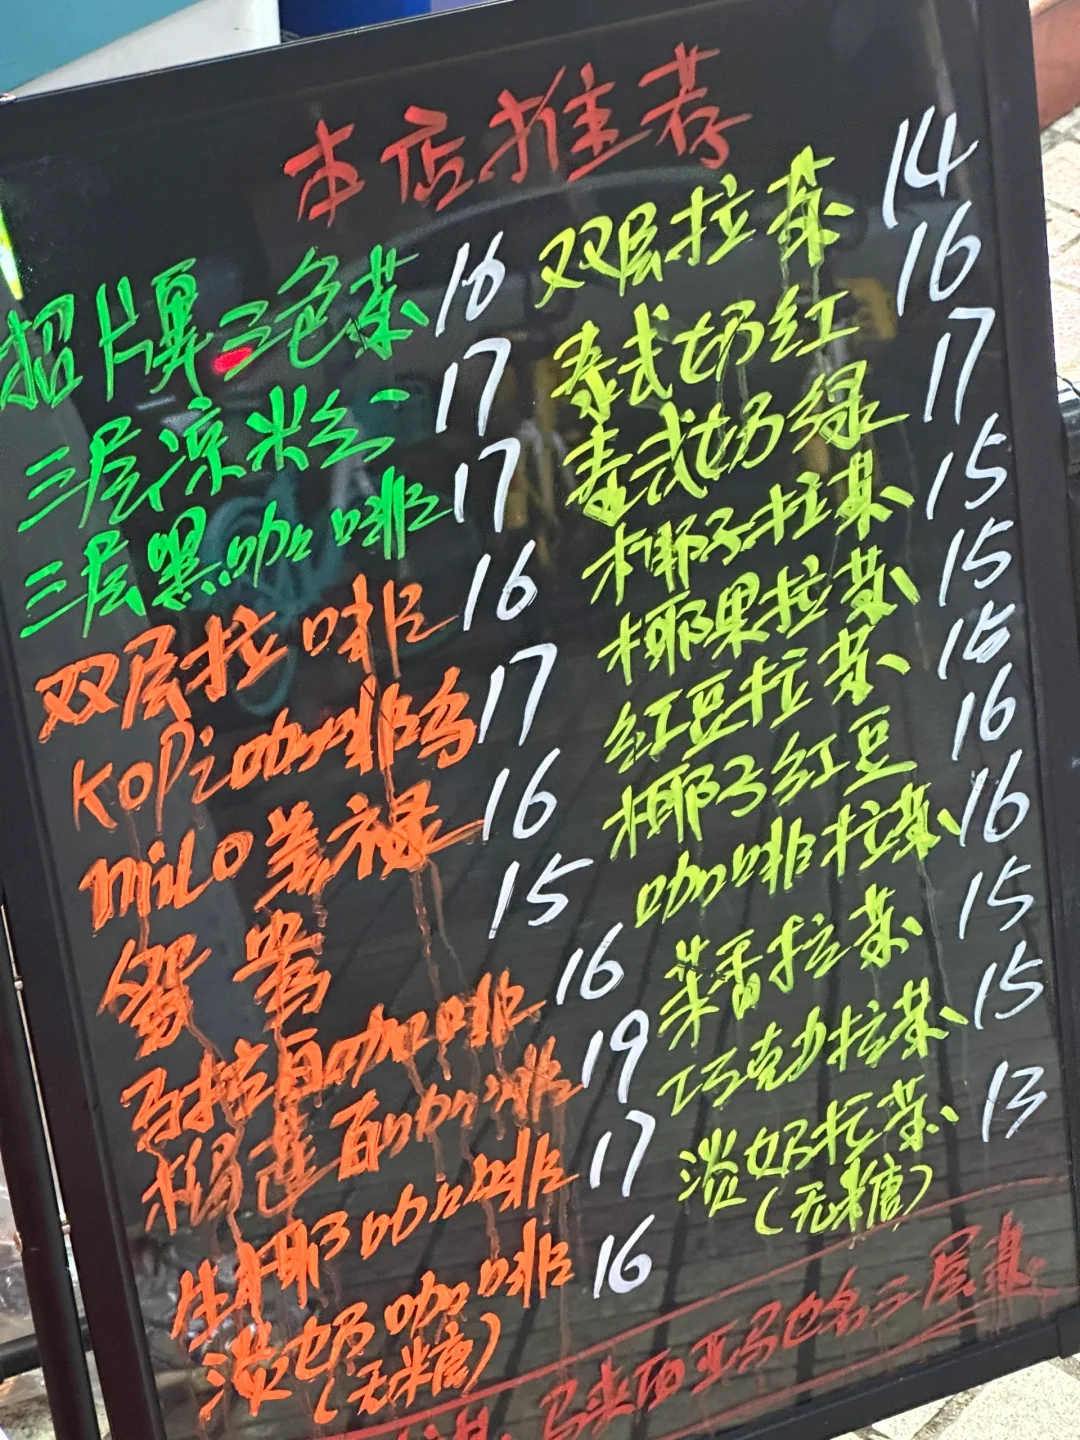 本店推荐
招牌三色茶 16
三层凉粉 17
三层黑咖啡 17
双层拉啡 16
kopi咖啡乌 17
milo美禄 16
鸳鸯 15
马拉白咖啡 16
榴莲白咖啡 19
生椰咖啡 17
淡奶咖啡 16
(无糖)
双层拉茶 14
泰式奶红 16
泰式奶绿 17
椰子拉茶 15
椰果拉茶 15
红豆拉茶 15
椰子红豆 16
咖啡拉茶 16
茉香拉茶 15
巧克力拉茶 15
淡奶拉茶 13
(无糖)
马来西亚马也名三层茶